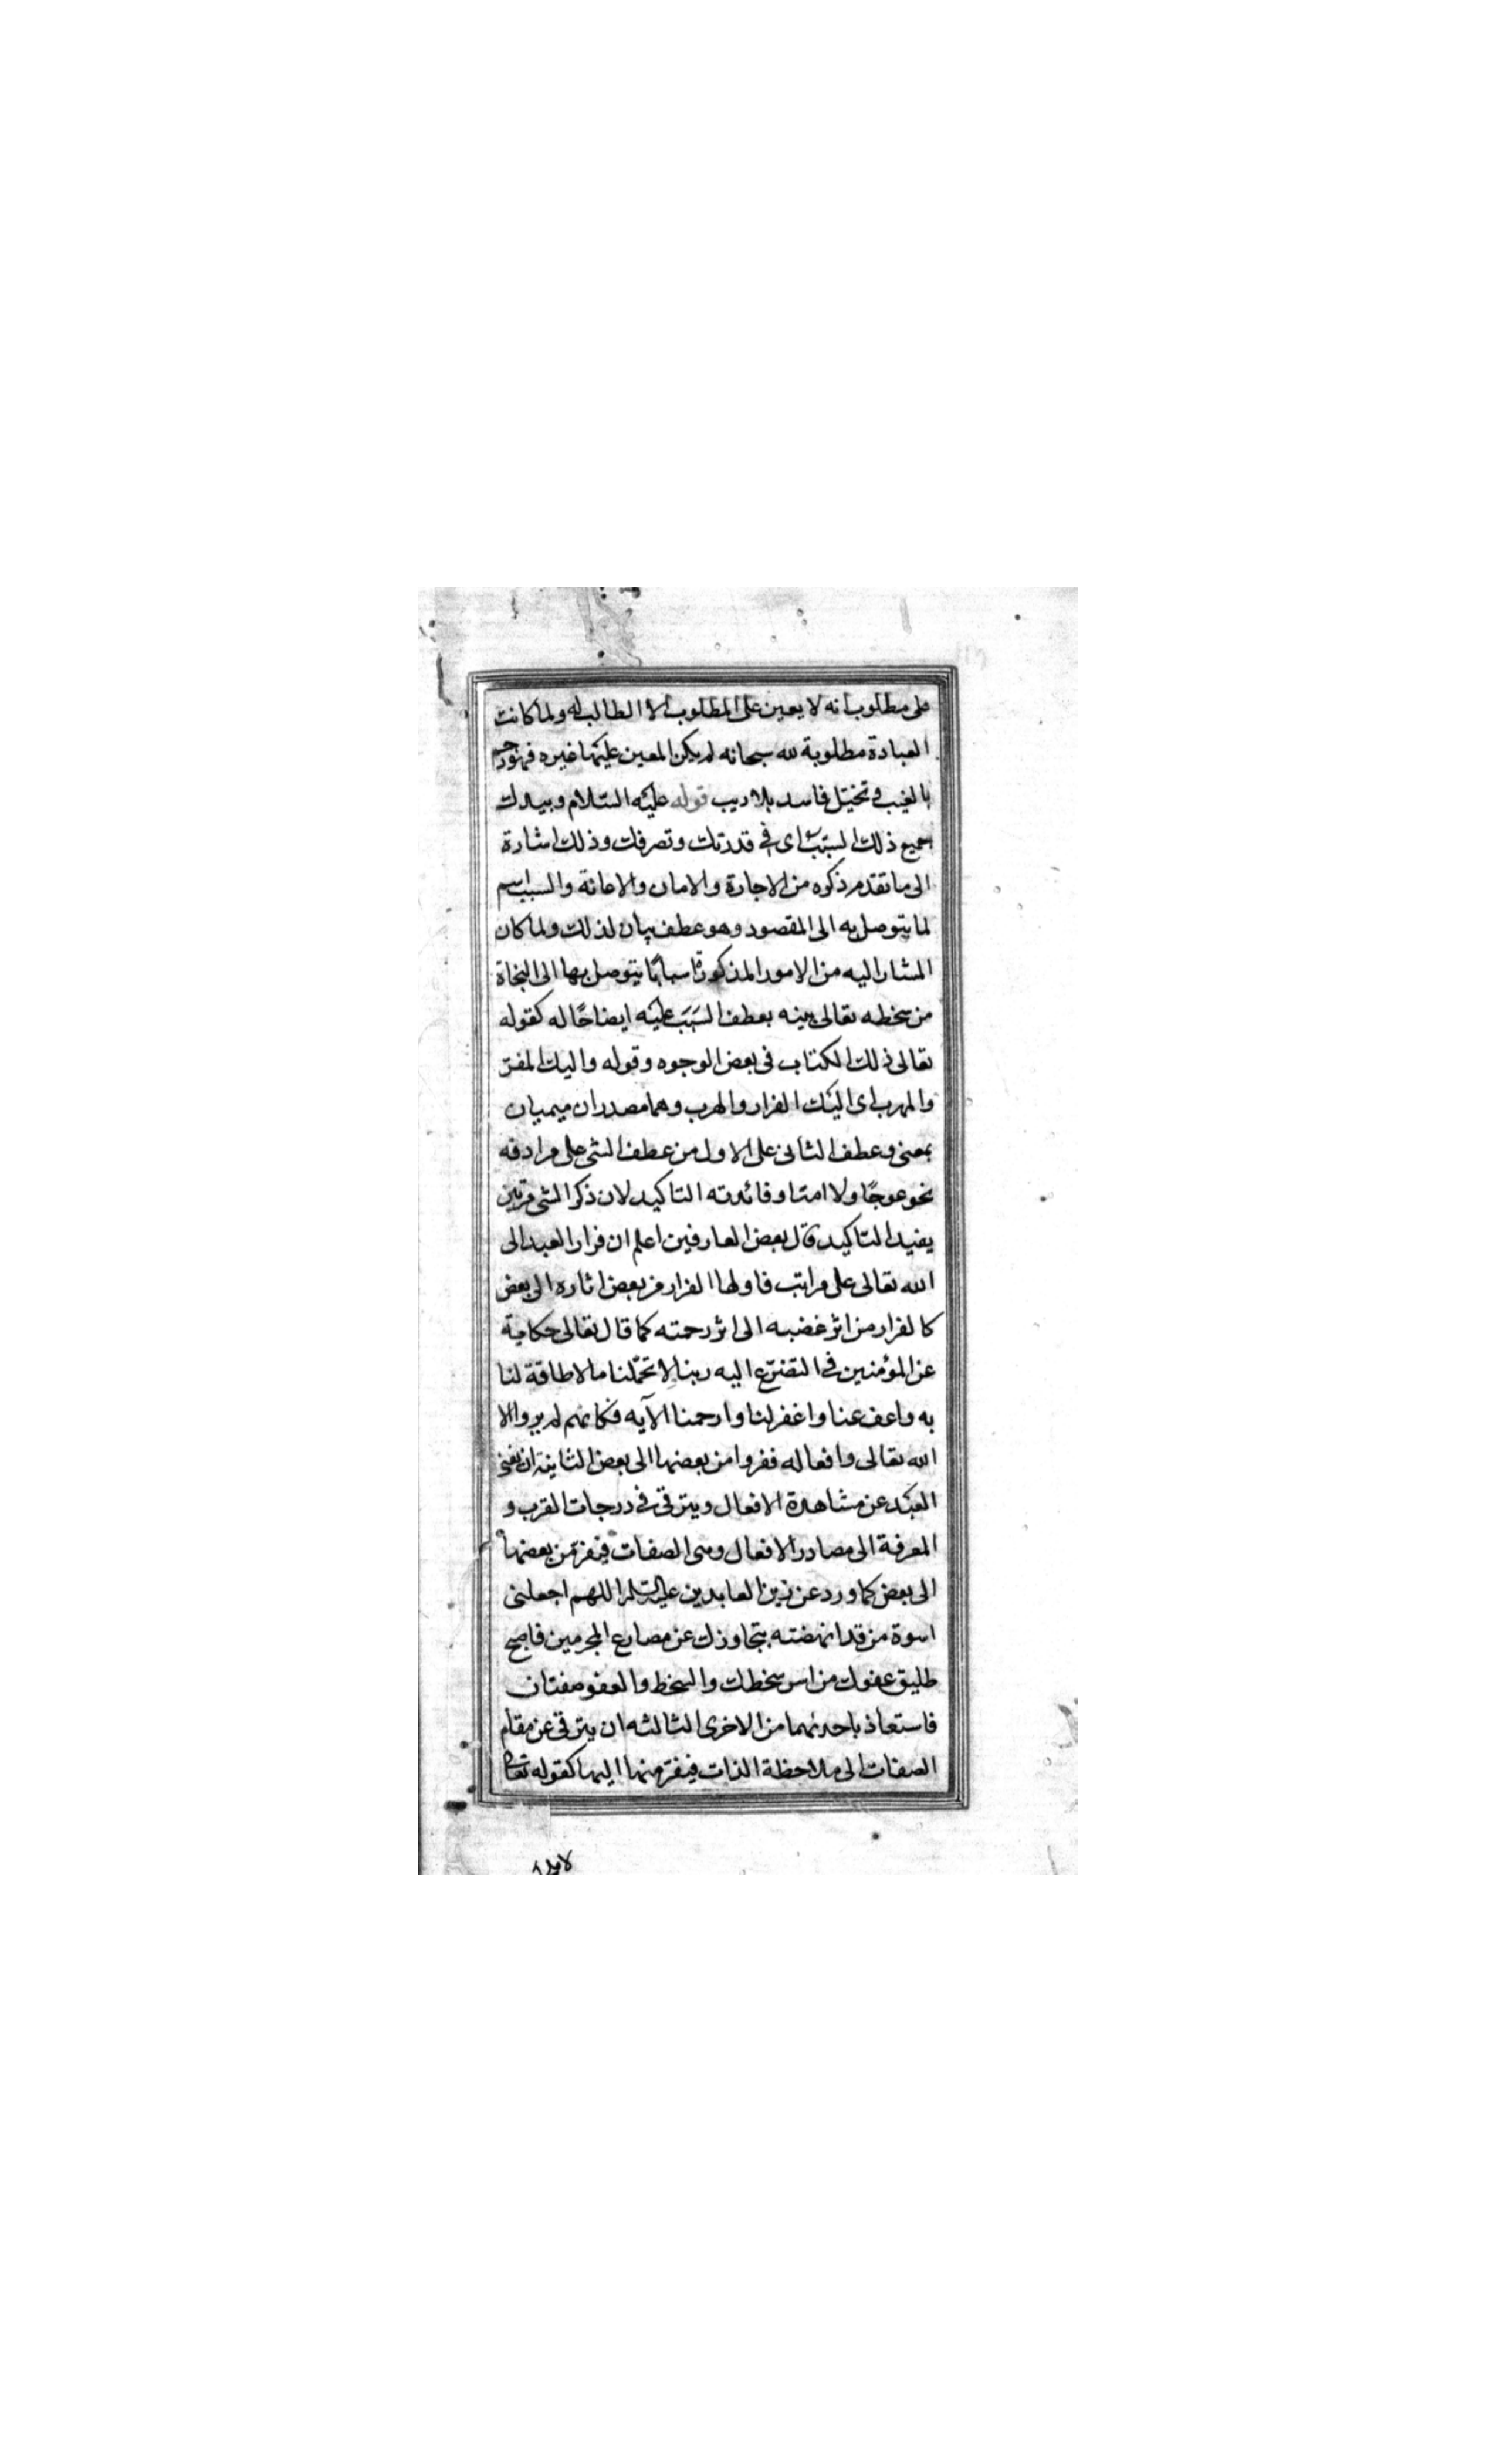 على مطلوب انه لا يعين على المطلوب الا الطالب له ولما كانت
العبادة مطلوبة لله سبحانه لم يكن المعين عليها غيره فهو رجم
بالغيب وتخيّل فاسد بلا ريب قوله عليه السّلام وبيدك
جميع ذلك السبب اى فى قدرتك وتصرفك وذلك اشارة
الى ما تقدم ذكره من الاجارة والامان والاعانة والسبب اسم
لما يتوصل به الى المقصود وهو عطف بيان لذلك ولما كان
المشار اليه من الامور المذكورة اسبابًا يتوصل بها الى النجاة
من سخطه تعالى بينه بعطف السَبَب عليه ايضاحًا له كقوله
تعالى ذلك الكتاب فى بعض الوجوه وقوله واليك المفرّ
والمهرب اى اليك الفرار والهرب وهما مصدران ميميان
بمعنى وعطف الثانى على الاول من عطف الشى على مرادفه
نحو عوجًا ولا امتا وفائدته التاكيد لان ذكر الشى مرتين
يفيد التاكيد قال بعض العارفين اعلم ان فرار العبد الى
الله تعالى على مراتب فاولها الفرار من بعض اثاره الى بعض
كالفرار من اثر غضبه الى اثر رحمته كما قال تعالى حكاية
عن المؤمنين فى التضرّع اليه ربنا لا تحمّلنا ما لا طاقة لنا
به واعف عنا واغفر لنا وارحمنا الآيه فكانهم لم يروا الا
الله تعالى وافعاله ففروا من بعضها الى بعض الثانية ان يفنى
العبد عن مشاهدة الافعال ويترقى فى درجات القرب و
المعرفة الى مصادر الافعال وهى الصفات فيفرّ من بعضها
الى بعض كما ورد عن زين العابدين عليه السّلم اللهم اجعلنى
اسوة من قد انهضته بتجاوزك عن مصارع المجرمين فاصبح
طليق عفوك من اسر سخطك والسخط والعفو صفتان
فاستعاذ باحدىهما من الاخرى الثالثه ان يترقى عن مقام
الصفات الى ملاحظة الذات فيفرّ منها اليها كقوله تعالى